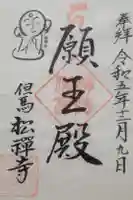 奉拝 令和五年十二月九日
願王殿
但馬 松禅寺